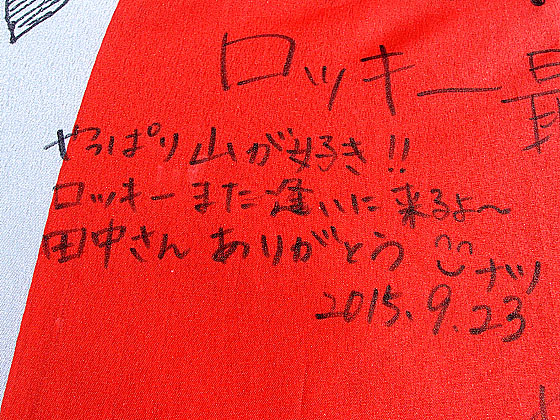 ロッキー最
やっぱり山が好き!!
ロッキーまた逢いに来るよ〜
田中さん ありがとう
ナツ
2015.9.23